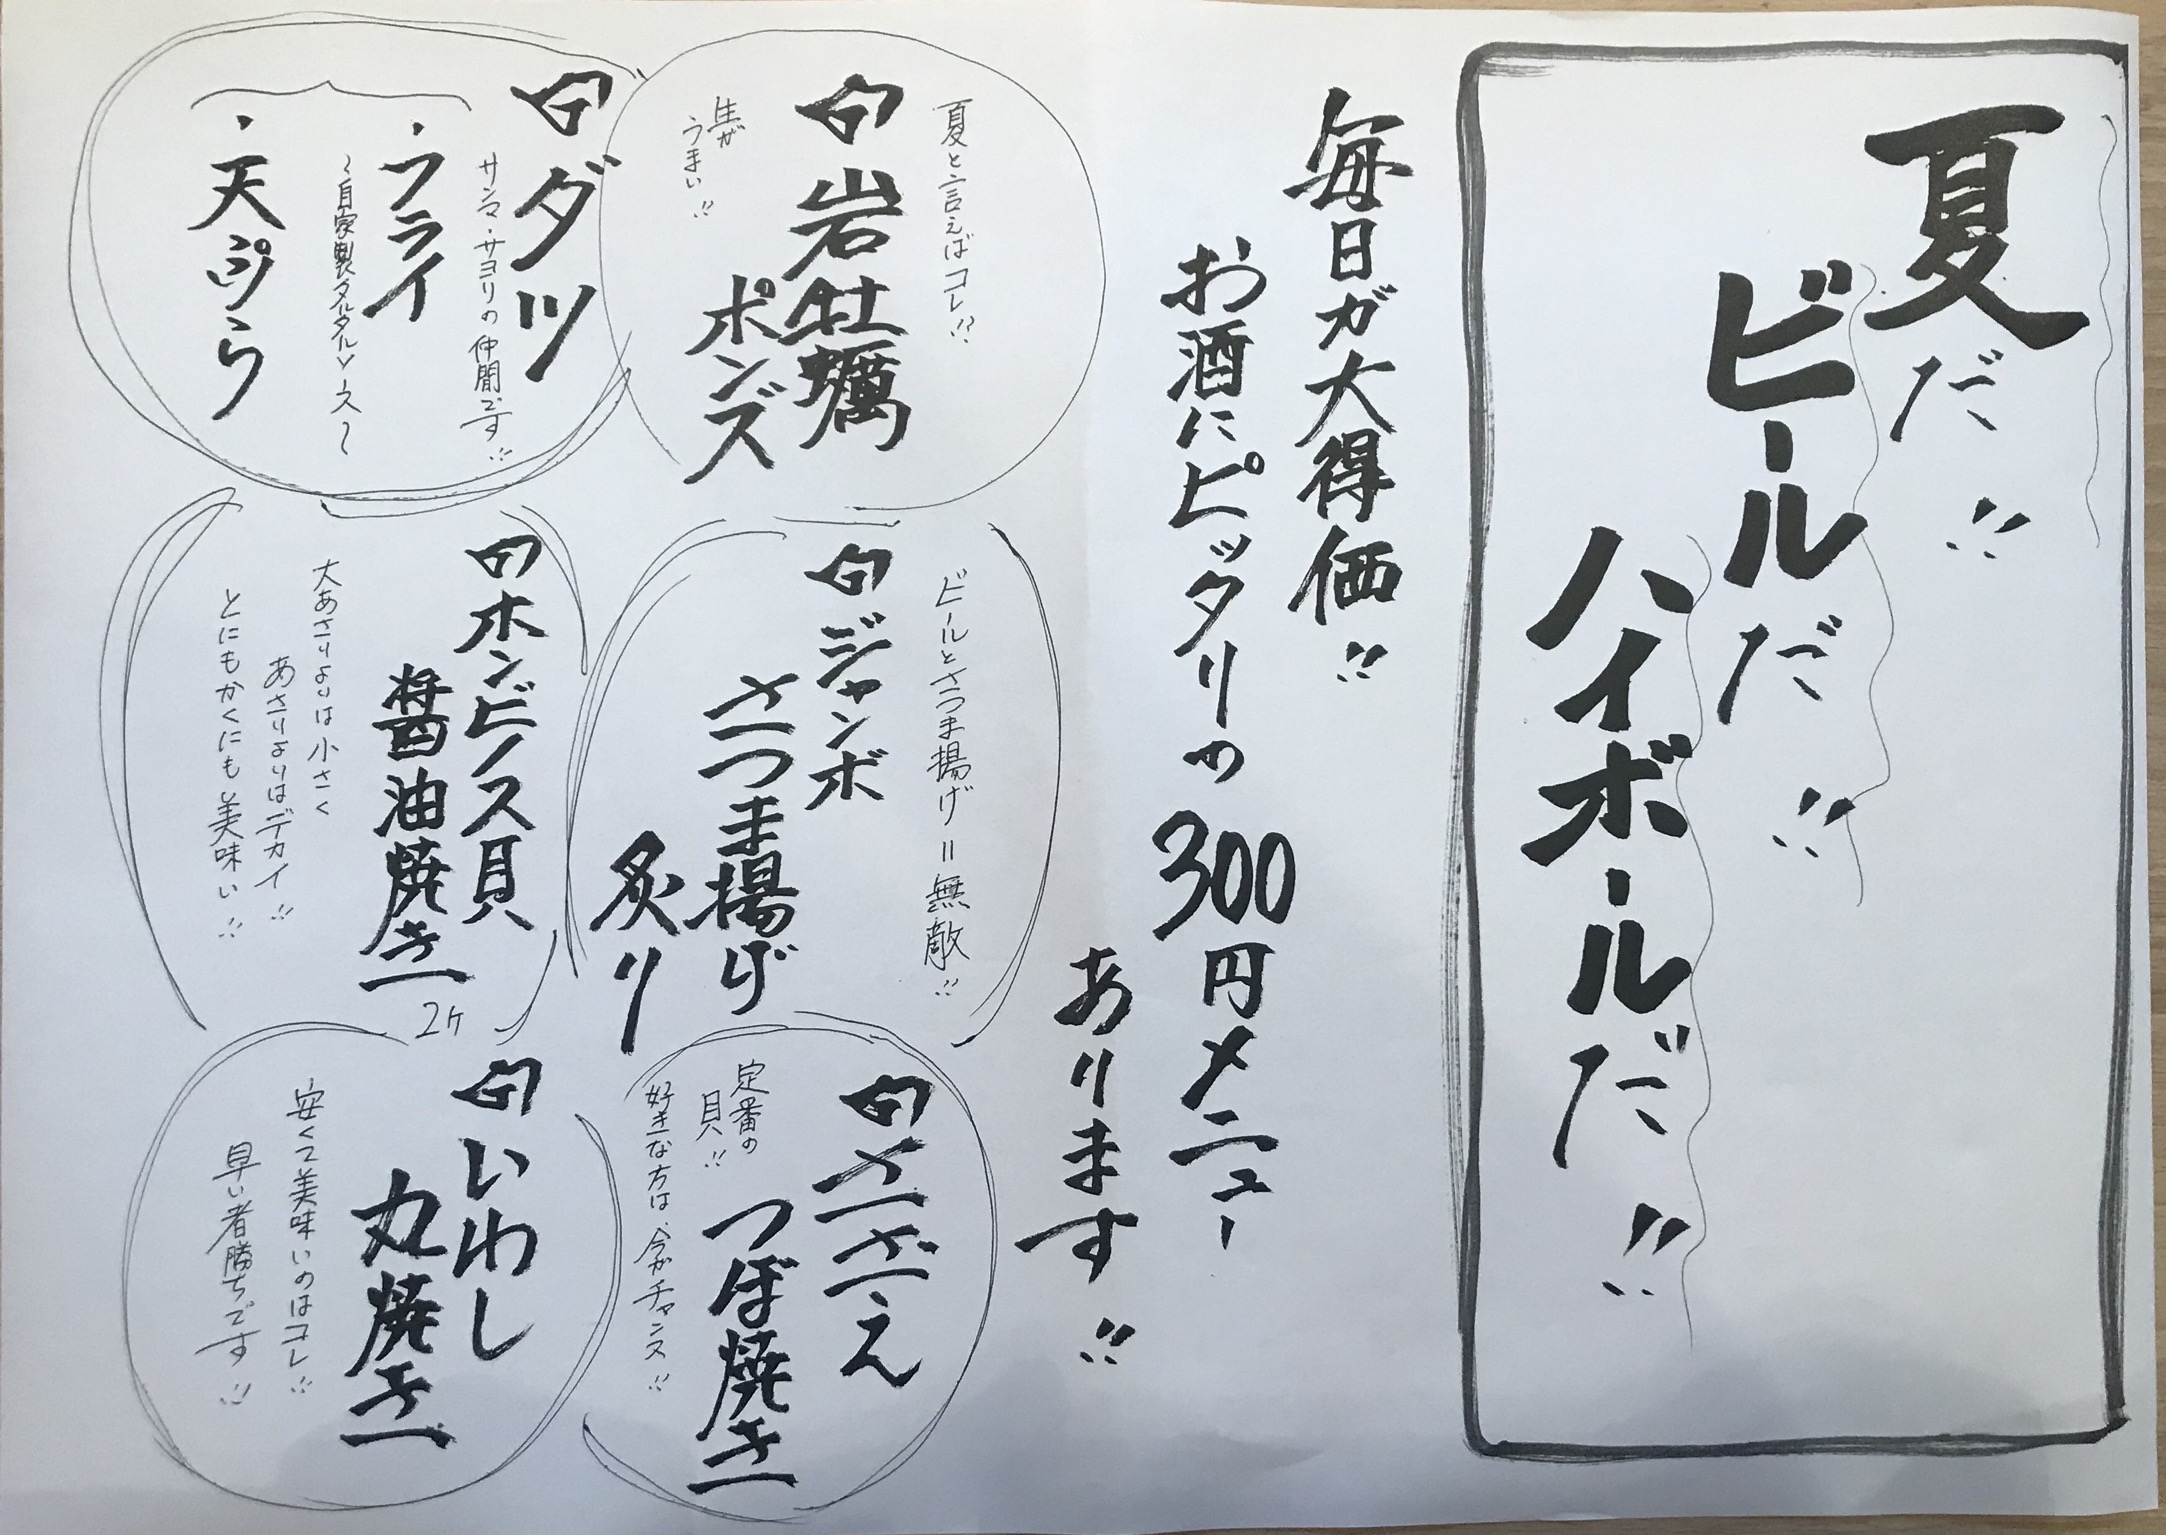 夏だ!!
ビールだ!!
ハイボールだ!!
毎日ガ大得価!!
お酒にピッタリの300円メニュー
あります!!
夏と言えばコレ!!
岩牡蠣
ポンズ
生が
うまい!!
ビールとさつま揚げ=無敵!!
ジャンボ
さつま揚げ
炙り
さざえ
つぼ焼き
定番の
貝!!
好きな方は、今がチャンス!!
ダツ
サンマ・サヨリの仲間です!!
・フライ
〜自家製タルタルソース〜
・天ぷら
ホンビノス貝
醤油焼き
2ヶ
大あさりよりは小さく
あさりよりはデカイ!!
とにもかくにも美味い!!
いわし
丸焼き
安くて美味いのはコレ!!
早い者勝ちです!!